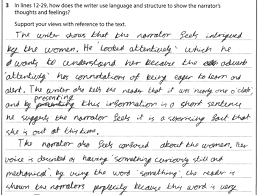 3 In lines 12-29, how does the writer use language and structure to show the narrator's
thoughts and feelings?
Support your views with reference to the text.
The writer shows that the narrator feels intrigued
by the women. He 'looked attentively' which he
wants to understand her because the adverb
'attentively' has connotations of being eager to learn and
alert. The writer also tells the reader that it was nearly one o'clock,
and by presenting this information in a short sentence
he suggests the narrator feels it is a worrying fact that
she is out at this time.
The narrator also feels confused about the women, her
voice is described as having 'something curiously still and
mechanical'. By using the word 'something' the reader is
shown the narrators perplexity because this word is very